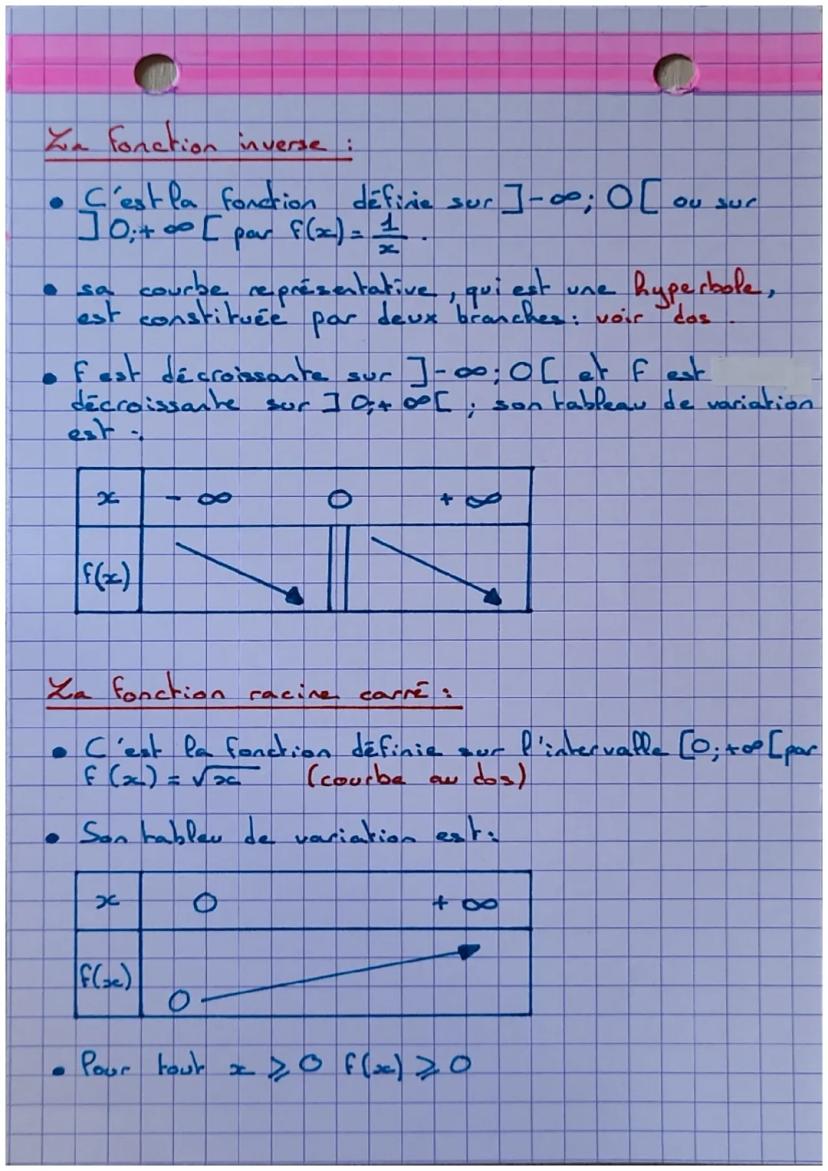 La fonction inverse :
• C'est la fonction définie sur ]-∞; 0[ ou sur
]0;+ ∞[ par f(x) = 1/x .
• sa courbe représentative, qui est une hyperbole,
est constituée par deux branches : voir dos .
• f est décroissante sur ]-∞; 0[ et f est
décroissante sur ]0;+ ∞[ ; son tableau de variation
est :
x - ∞ 0 + ∞
f(x)
La fonction racine carré :
• C'est la fonction définie sur l'intervalle [0;+∞[ par
f(x) = √x (courbe au dos)
• Son tableu de variation est :
x 0 + ∞
f(x)
0
• Pour tout x ⩾ 0 f(x) ⩾ 0